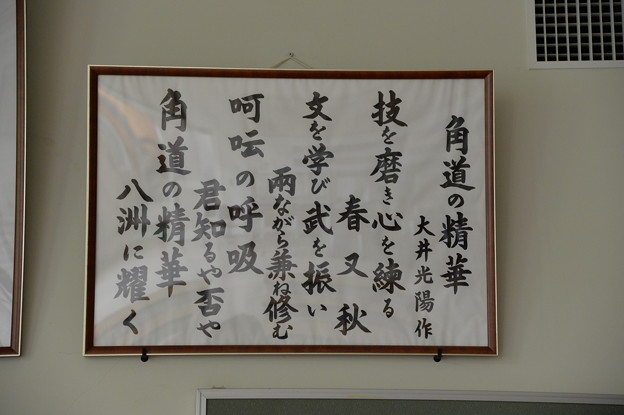 角道の精華
大井光陽作
技を磨き心を練る
春又秋
文を学び武を振い
両ながら兼ね修む
呵吽の呼吸
君知るや否や
角道の精華
八洲に耀く